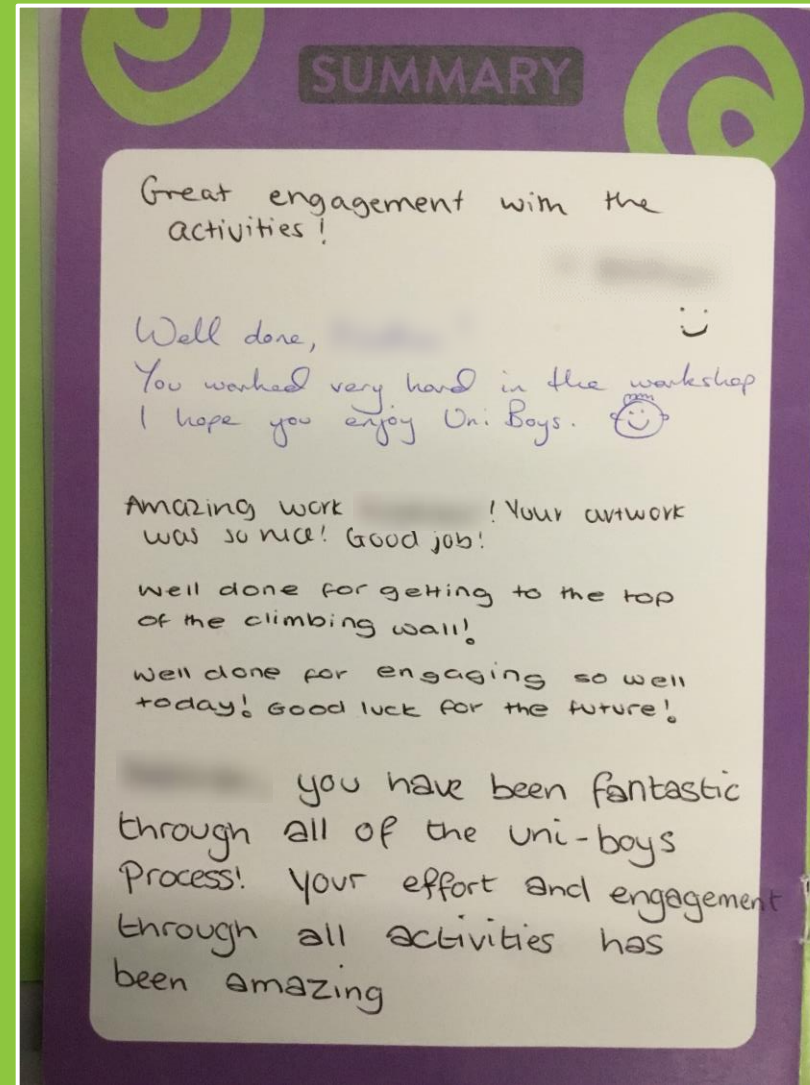 SUMMARY
Great engagement with the
activities!
Well done,
You worked very hard in the workshop
I hope you enjoy Uni Boys.
Amazing work ! Your artwork
was so nice! Good job!
Well done for getting to the top
of the climbing wall!
Well done for engaging so well
today! Good luck for the future!
you have been fantastic
through all of the uni-boys
Process! Your effort and engagement
through all activities has
been amazing